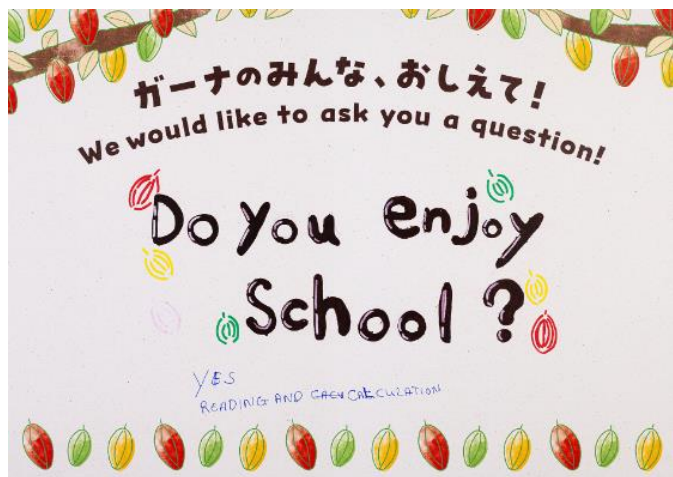 ガーナのみんな、おしえて!
We would like to ask you a question!
Do you enjoy
School ?
YES
READING AND CALCULATION